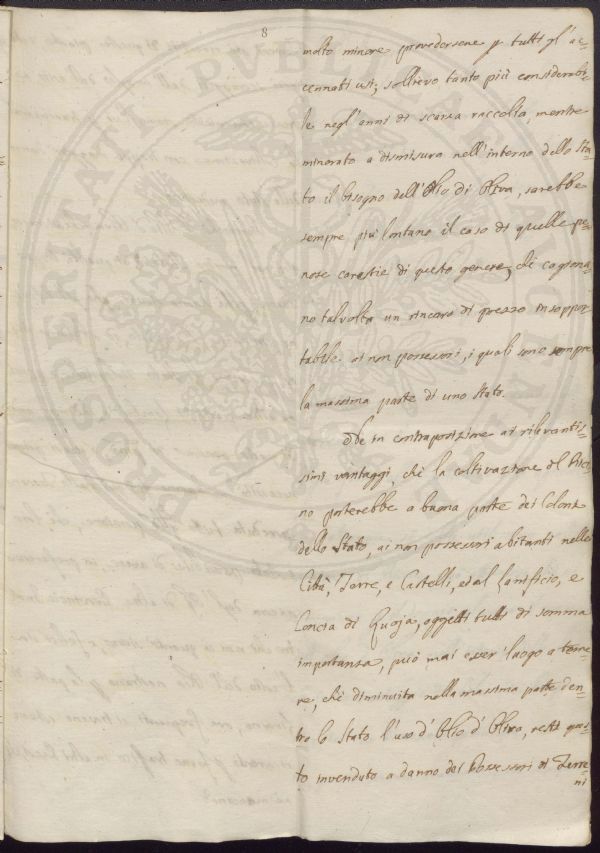 8
molto minore provedersene p tutti gl' ac=
cennati usi; sollievo tanto più considerabi=
le negl' anni di scarsa raccolta, mentre
minorato a dismisura nell' interno dello Sta=
to il bisogno dell' Olio di Oliva, sarebbe
sempre più lontano il caso di quelle pe=
nose carestie di questo genere, che cagiona=
no talvolta un rincaro di prezzo insoppor=
tabile ai non possessori, i quali sono sempre
la massima parte di uno Stato.
Ode in contraposizione ai rilevantis=
simi vantaggi, che la coltivazione del Rici=
no porterebbe a buona parte dei Coloni
dello Stato, ai non possessori abitanti nelle
Città, Terre, e Castelli, ed al lanificio, e
Concia di Quoja, oggetti tutti di somma
importanza, può mai esser luogo a teme=
re, che diminuita nella massima parte den=
tro lo Stato l' uso d' Olio d' Oliva, resti ques=
to invenduto a danno dei Possessori di Terre=
ni
PROSPERITATI PVBLICAE